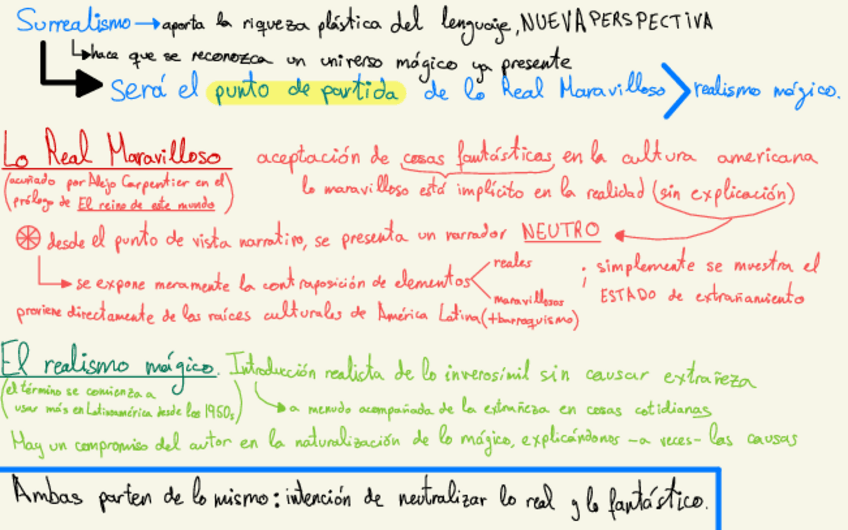 Surrealismo → aporta la riqueza plástica del lenguaje, NUEVA PERSPECTIVA
↳ hace que se reconozca un universo mágico ya presente
Será el punto de partida de lo Real Maravilloso > realismo mágico.
Lo Real Maravilloso aceptación de cosas fantásticas en la cultura americana
(acuñado por Alejo Carpentier en el
prólogo de El reino de este mundo)
lo maravilloso está implícito en la realidad (sin explicación)
desde el punto de vista narrativo, se presenta un narrador NEUTRO
↳ se expone meramente la contraposición de elementos < reales
maravillosos
; simplemente se muestra el
ESTADO de extrañamiento
proviene directamente de las raíces culturales de América Latina (+barroquismo)
El realismo mágico. Introducción realista de lo inverosímil sin causar extrañeza
(el término se comienza a
usar más en Latinoamérica desde los 1950s)
↳ a menudo acompañada de la extrañeza en cosas cotidianas
Hay un compromiso del autor en la naturalización de lo mágico, explicándonos -a veces- las causas
Ambas parten de lo mismo: intención de neutralizar lo real y lo fantástico.